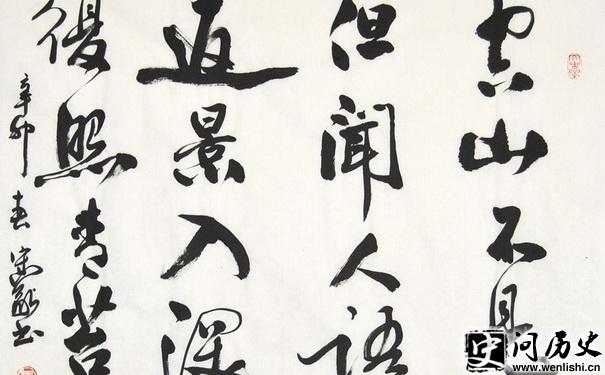 空山不見
但聞人語
返景入深
復照青苔
辛卯春宋书
史
问历史
www.wenlishi.cn